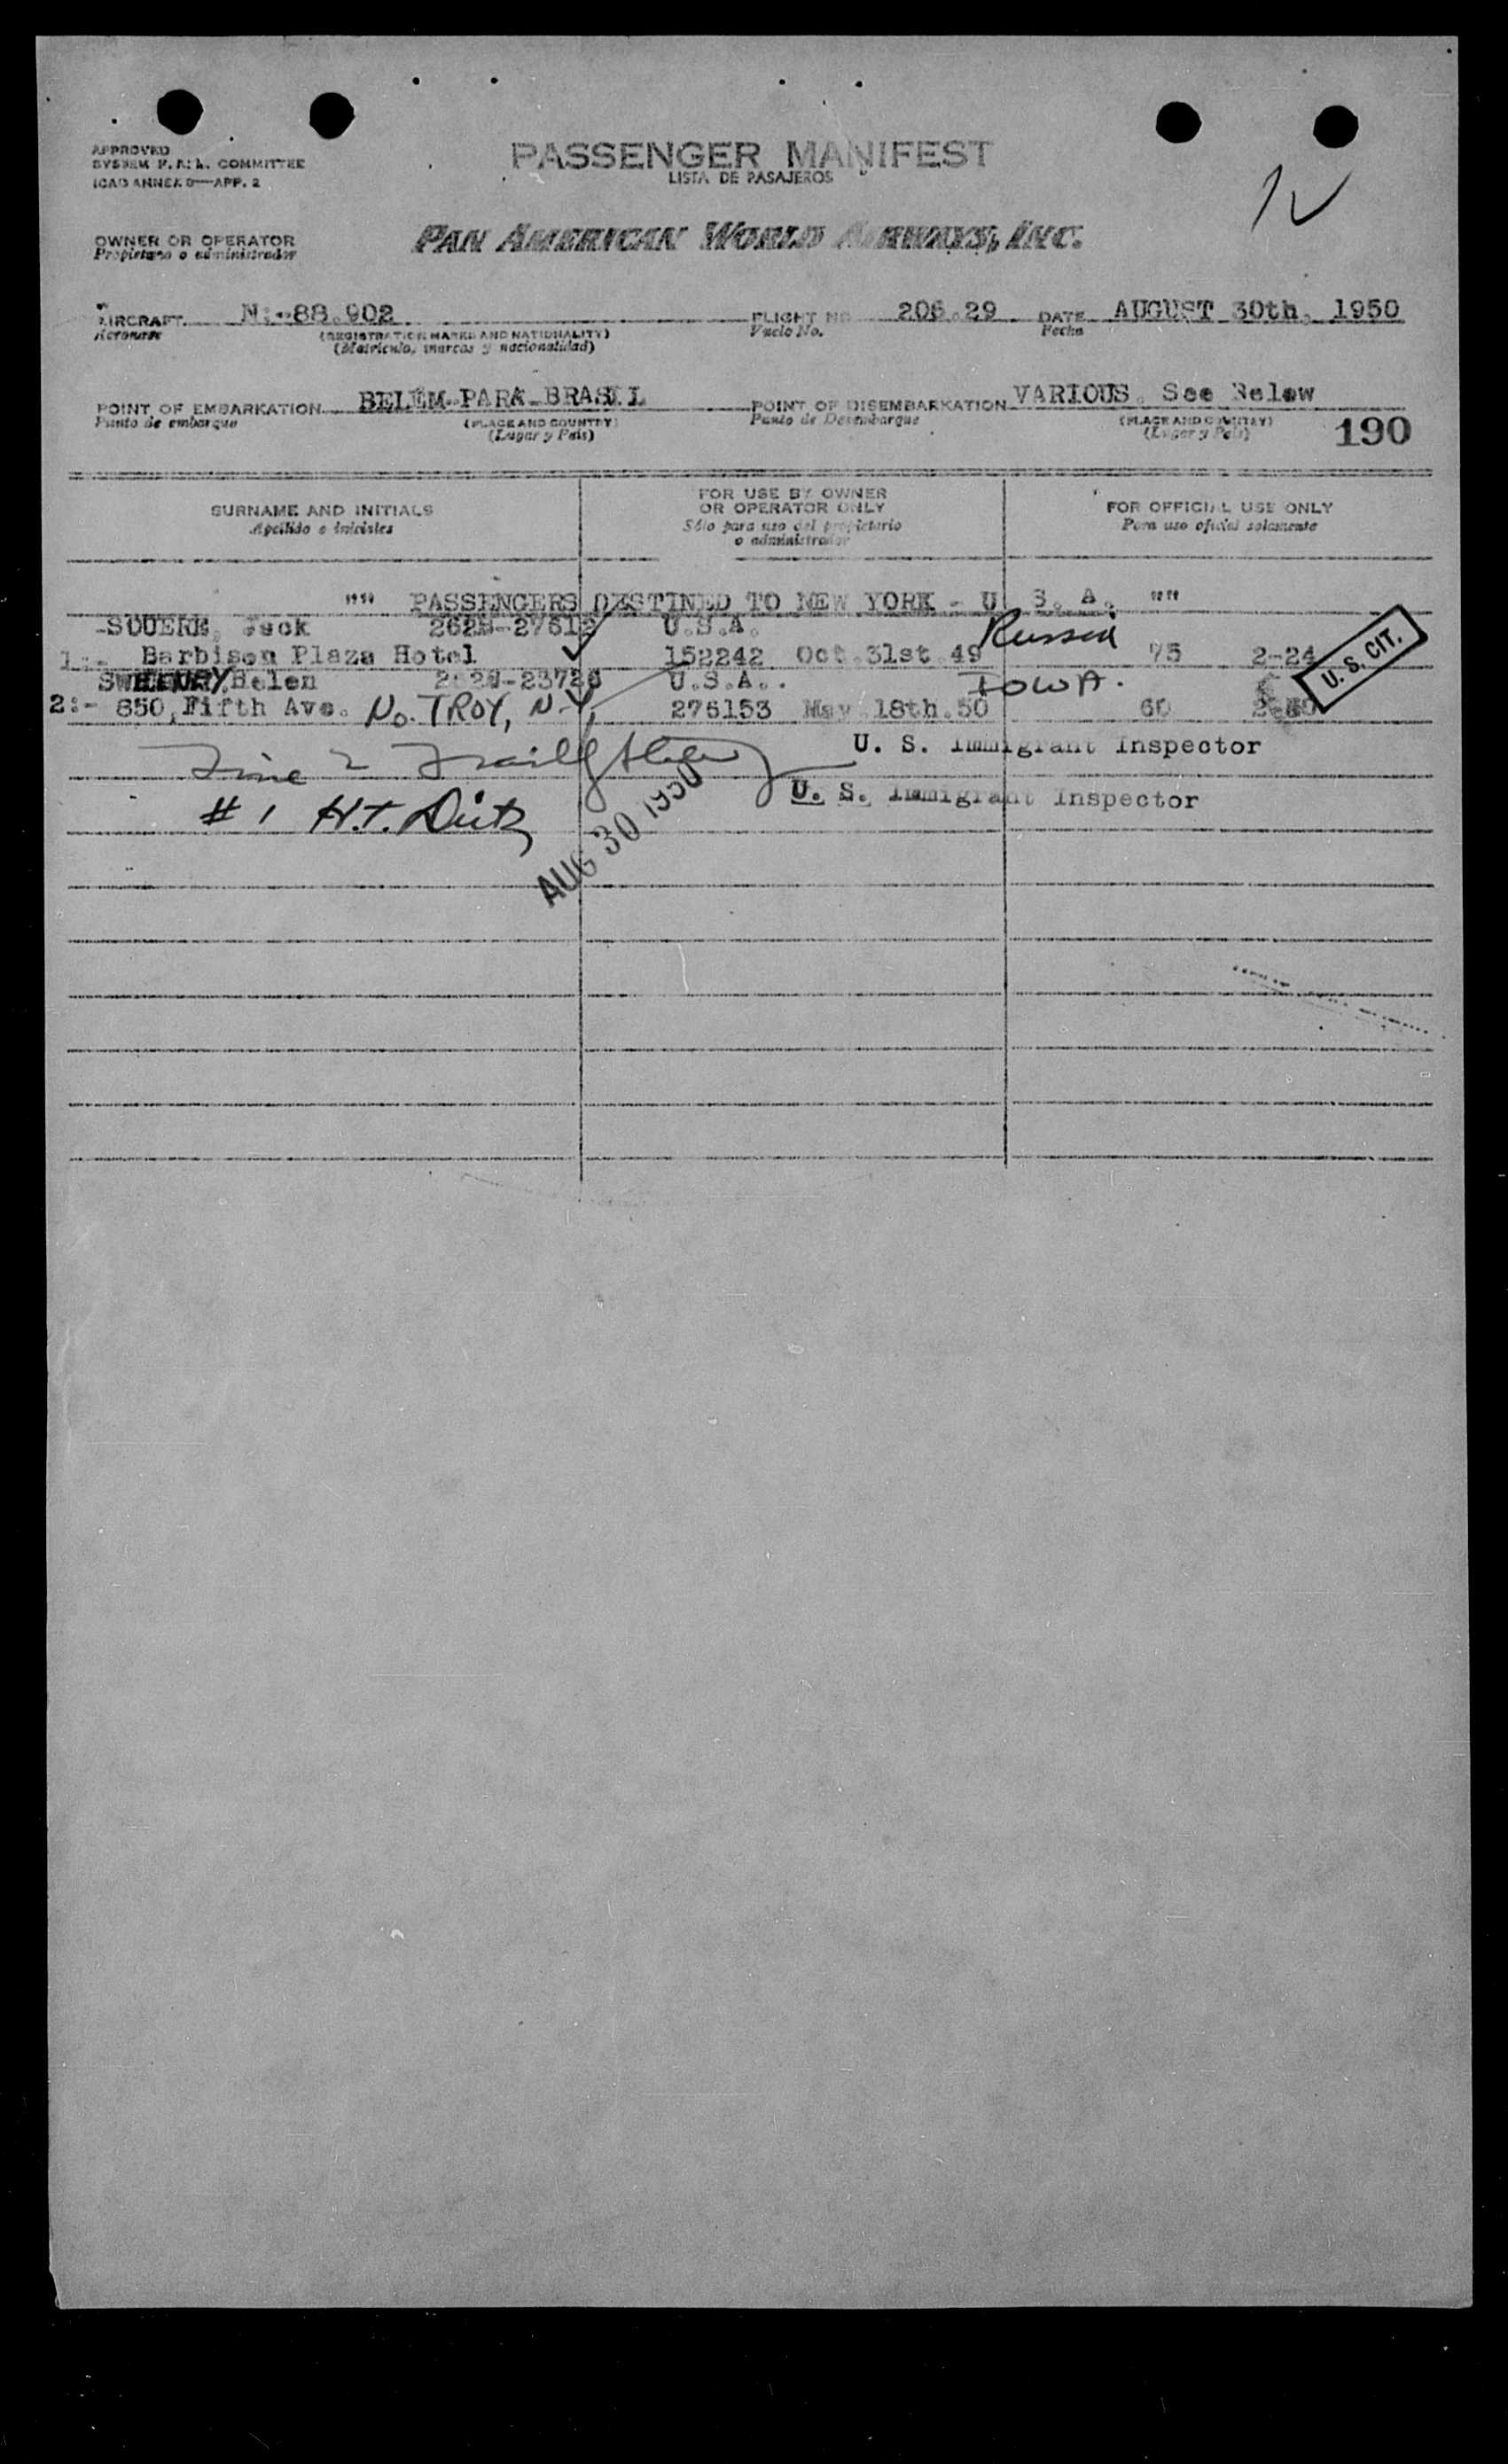 APPROVED
SYSTEM F. A. L. COMMITTEE
ICAO ANNEX 9—APP. 2
PASSENGER MANIFEST
LISTA DE PASAJEROS
OWNER OR OPERATOR
Propietario o administrador
PAN AMERICAN WORLD AIRWAYS, INC.
AIRCRAFT N:-88.902 FLIGHT NO 206.29 DATE AUGUST 30th. 1950
Aeronave (REGISTRATION MARKS AND NATIONALITY) Vuelo No. Fecha
(Matricula, marcas y nacionalidad)
POINT OF EMBARKATION BELEM-PARA-BRASIL POINT OF DISEMBARKATION VARIOUS. See Below
Punto de embarque (PLACE AND COUNTRY) Punto de Desembarque (PLACE AND COUNTRY)
(Lugar y Pais) (Lugar y Pais) 190
SURNAME AND INITIALS FOR USE BY OWNER OR OPERATOR ONLY FOR OFFICIAL USE ONLY
Apellido e iniciales Sólo para uso del propietario o administrador Para uso oficial solamente
"" PASSENGERS DESTINED TO NEW YORK - U. S. A. ""
Jack 262N-27612 U.S.A. Russia
1:- Barbison Plaza Hotel 152242 Oct.31st.49 75 2-24 U. S. CIT.
Helen U.S.A.. IOWA.
2:- 850, Fifth Ave. No. TROY, N-Y, 276153 May 18th.50 60
U. S. Immigrant Inspector
# 1 H.T. U. S. Immigrant Inspector
AUG 30 1950